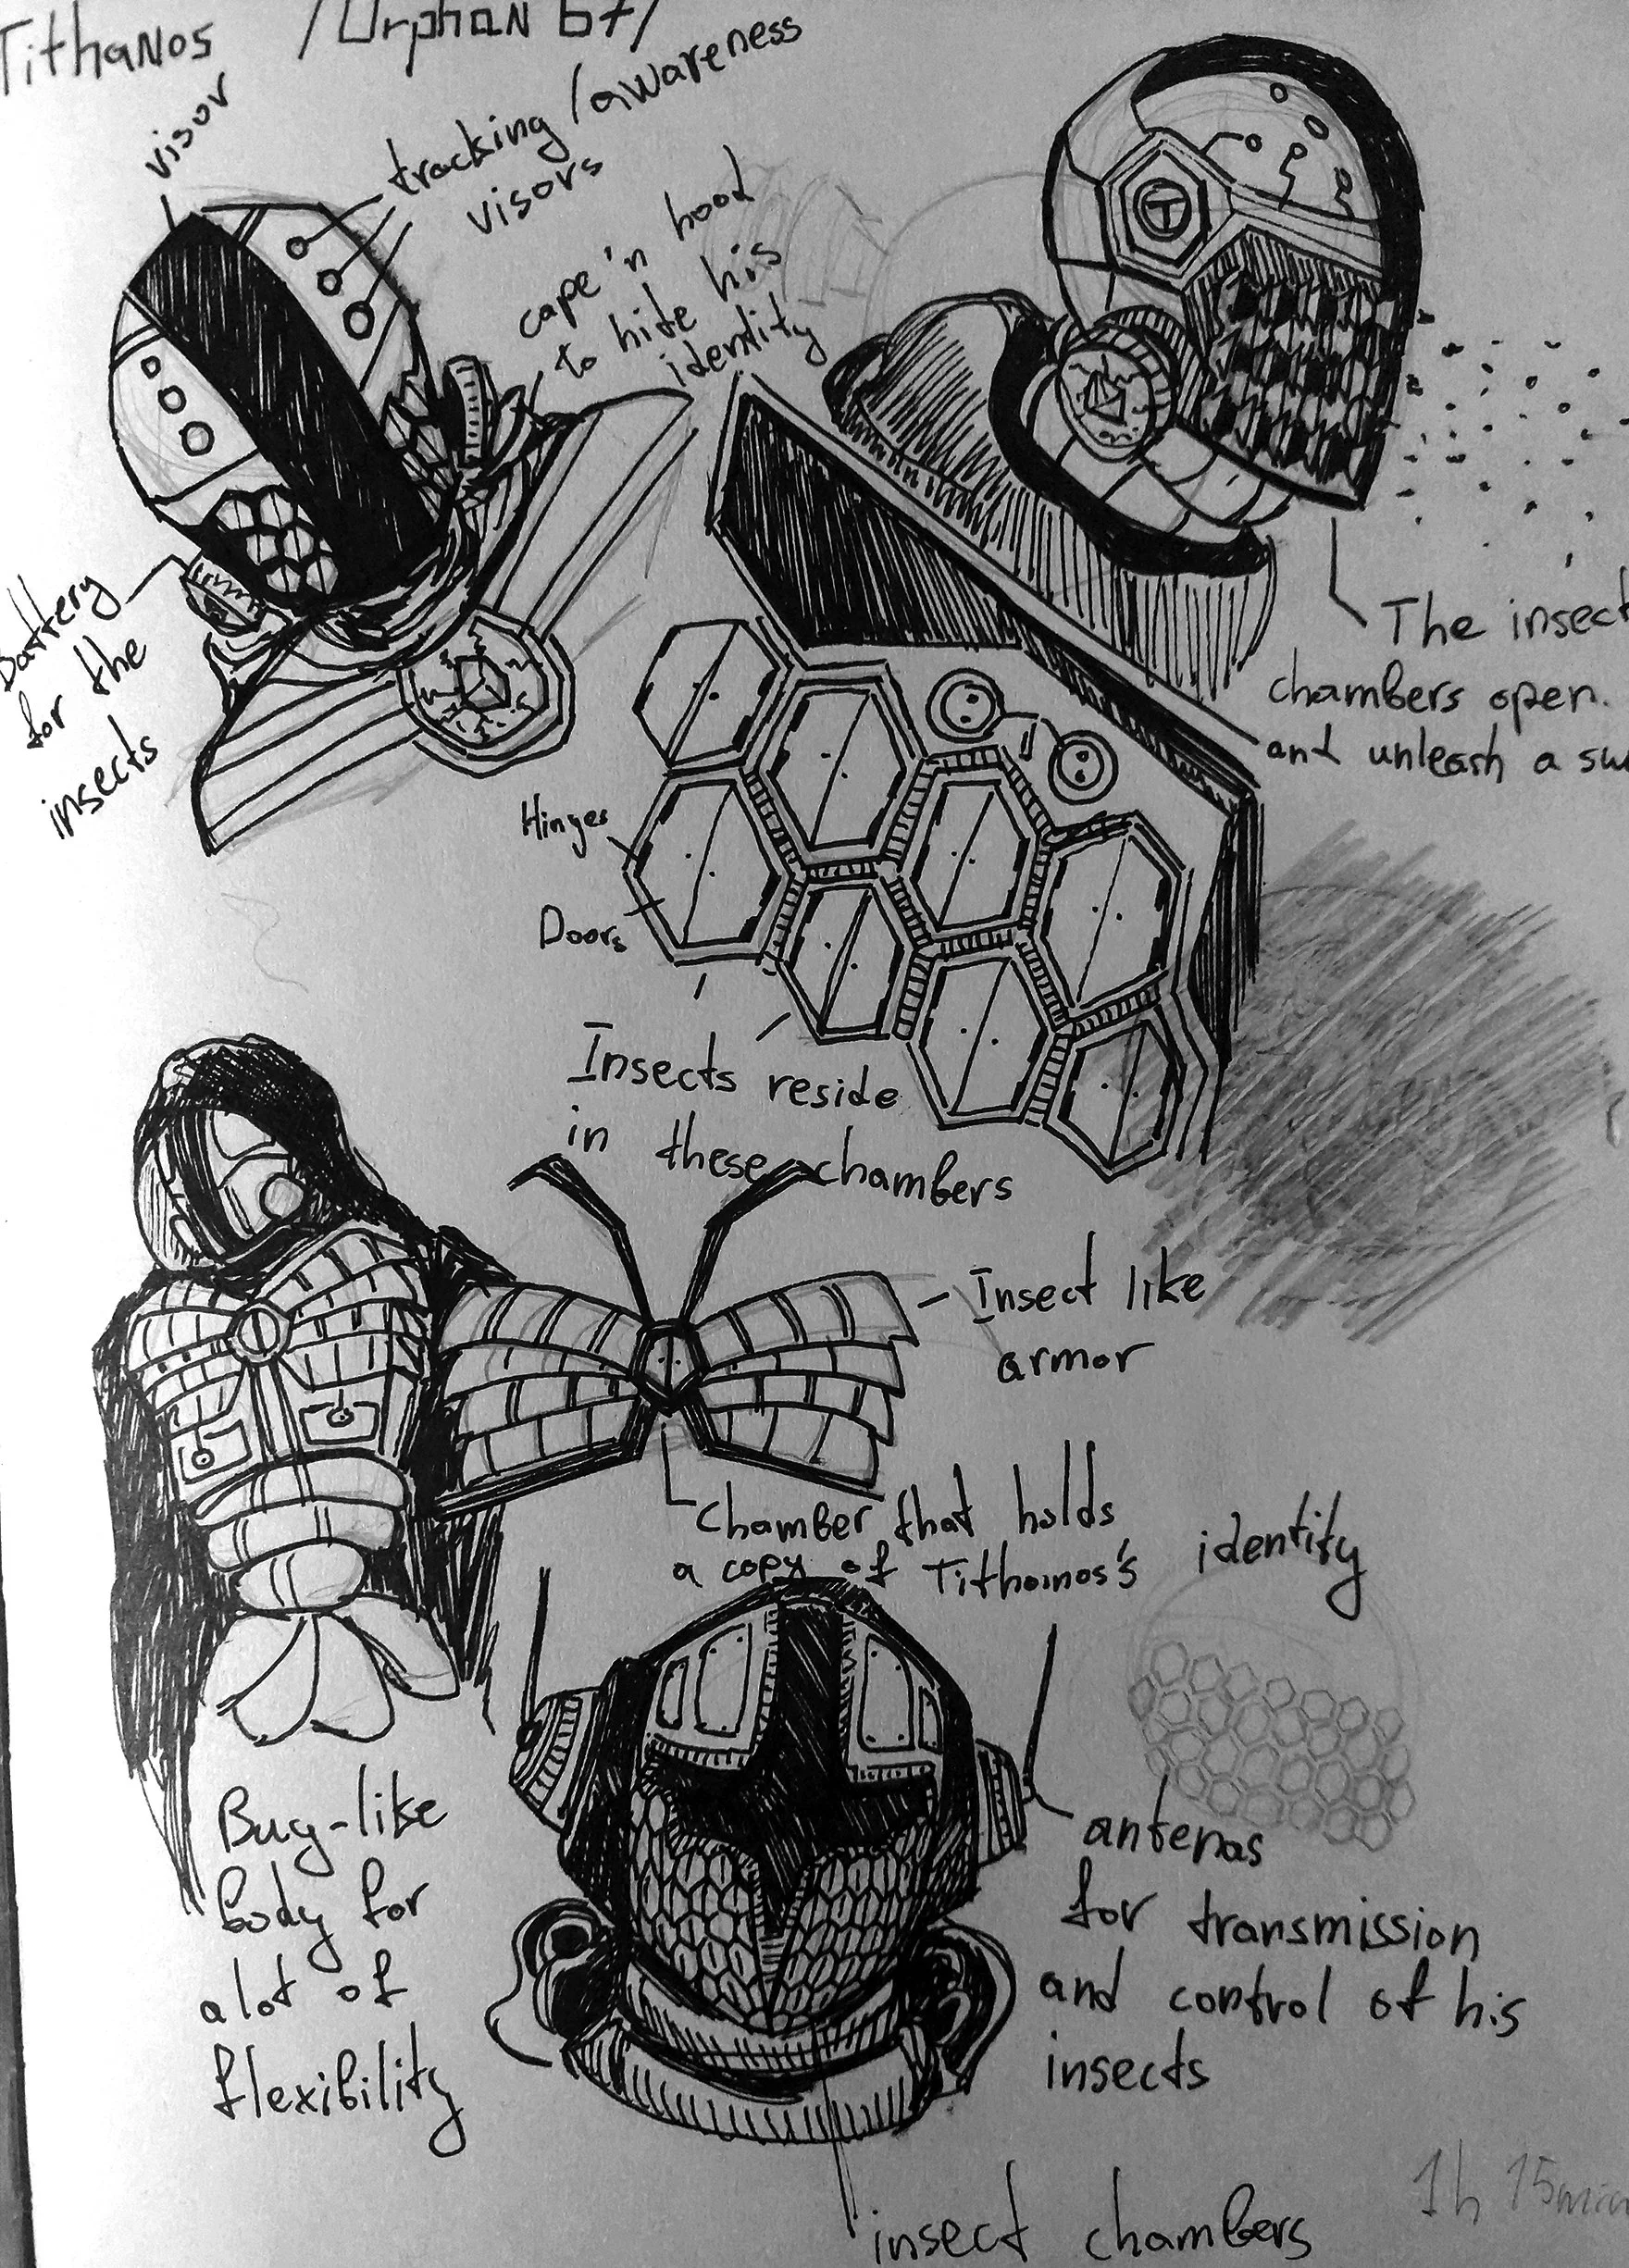 Tithanos /Orphan 67/
visor
tracking/awareness
visors
cape'n hood
to hide his
identity
Battery
for the
insects
T
The insect
chambers open.
and unleash a
Hinges
Doors
Insects reside
in these chambers
Insect like
armor
Chamber that holds
a copy of Tithanos's identity
Bug-like
body for
alot of
flexibility
antenas
for transmission
and control of his
insects
insect chambers
1h 15min